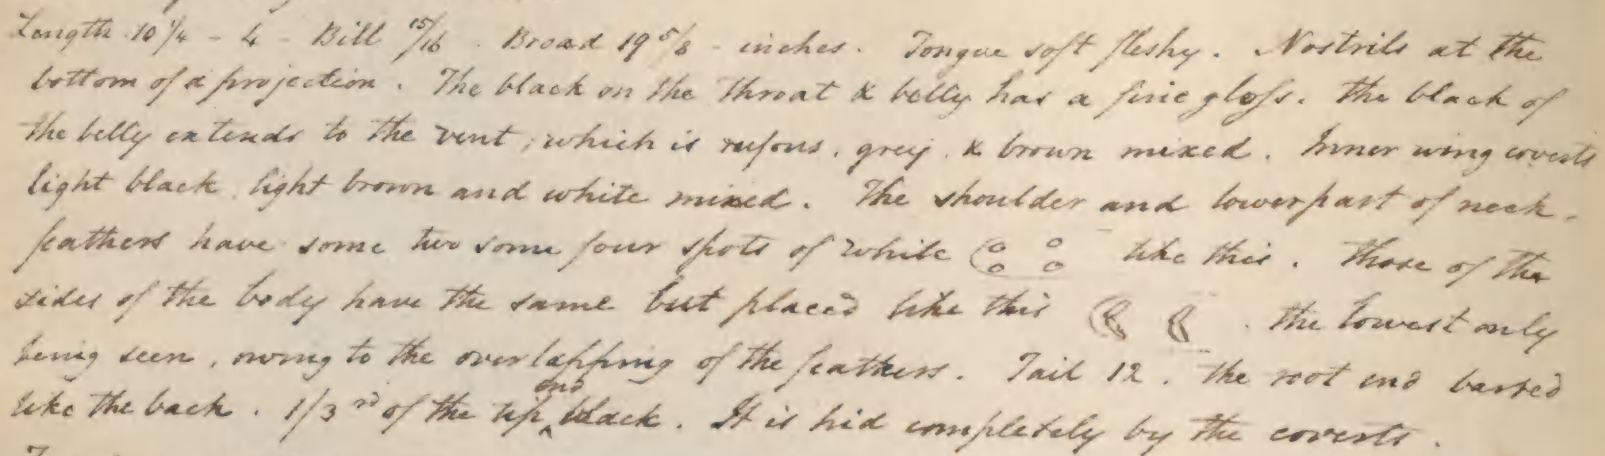 Length 10 1/4 - 4 - Bill 15/16. Broad 19 5/8 - inches. Tongue soft fleshy. Nostrils at the
bottom of a projection. The black on the throat & belly has a fine gloss. the black of
the belly extends to the vent, which is rufous, grey, & brown mixed. Inner wing coverts
light black, light brown and white mixed. The shoulder and lower part of neck-
feathers have some two some four spots of white like this. Those of the
sides of the body have the same but placed like this. the lowest only
being seen, owing to the overlapping of the feathers. Tail 12. the root end barred
like the back. 1/3rd of the tip end black. It is hid completely by the coverts.